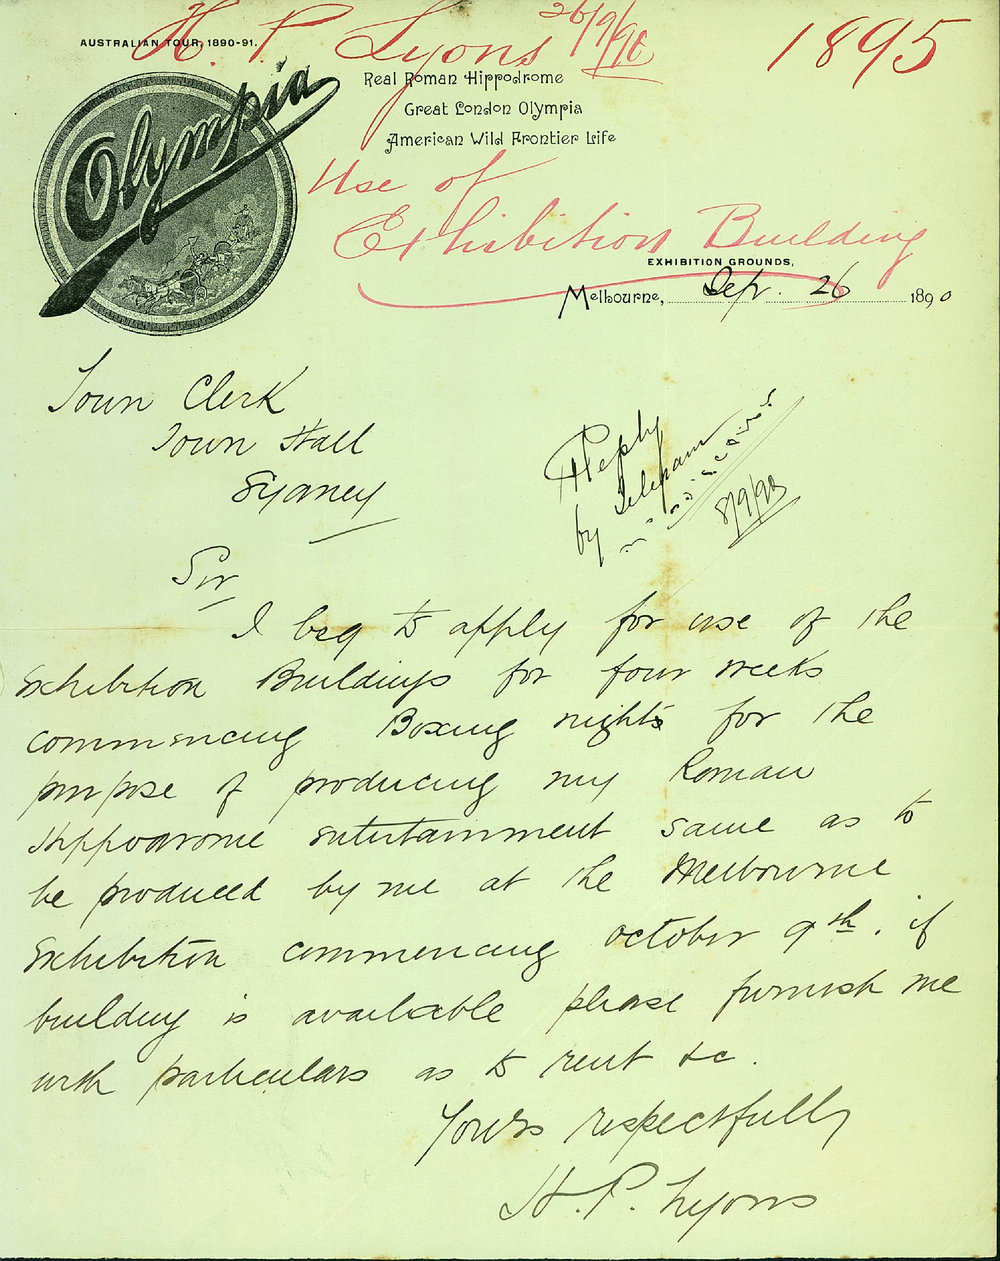 AUSTRALIAN TOUR, 1890-91.
H. P. Lyons 26/9/90
1895
Olympia
Real Roman Hippodrome
Great London Olympia
American Wild Frontier Life
Use of
Exhibition Building
EXHIBITION GROUNDS,
Melbourne, Sepr. 26 1890
Town Clerk
Town Hall
Sydney
Reply
by Telegram
Sir
I beg to apply for use of the
Exhibition Buildings for four weeks
commencing Boxing night for the
purpose of producing my Roman
Hippodrome entertainment same as to
be produced by me at the Melbourne
Exhibition commencing october 9th. if
building is available please furnish me
with particulars as to rent &c.
Yours respectfully
H. P. Lyons